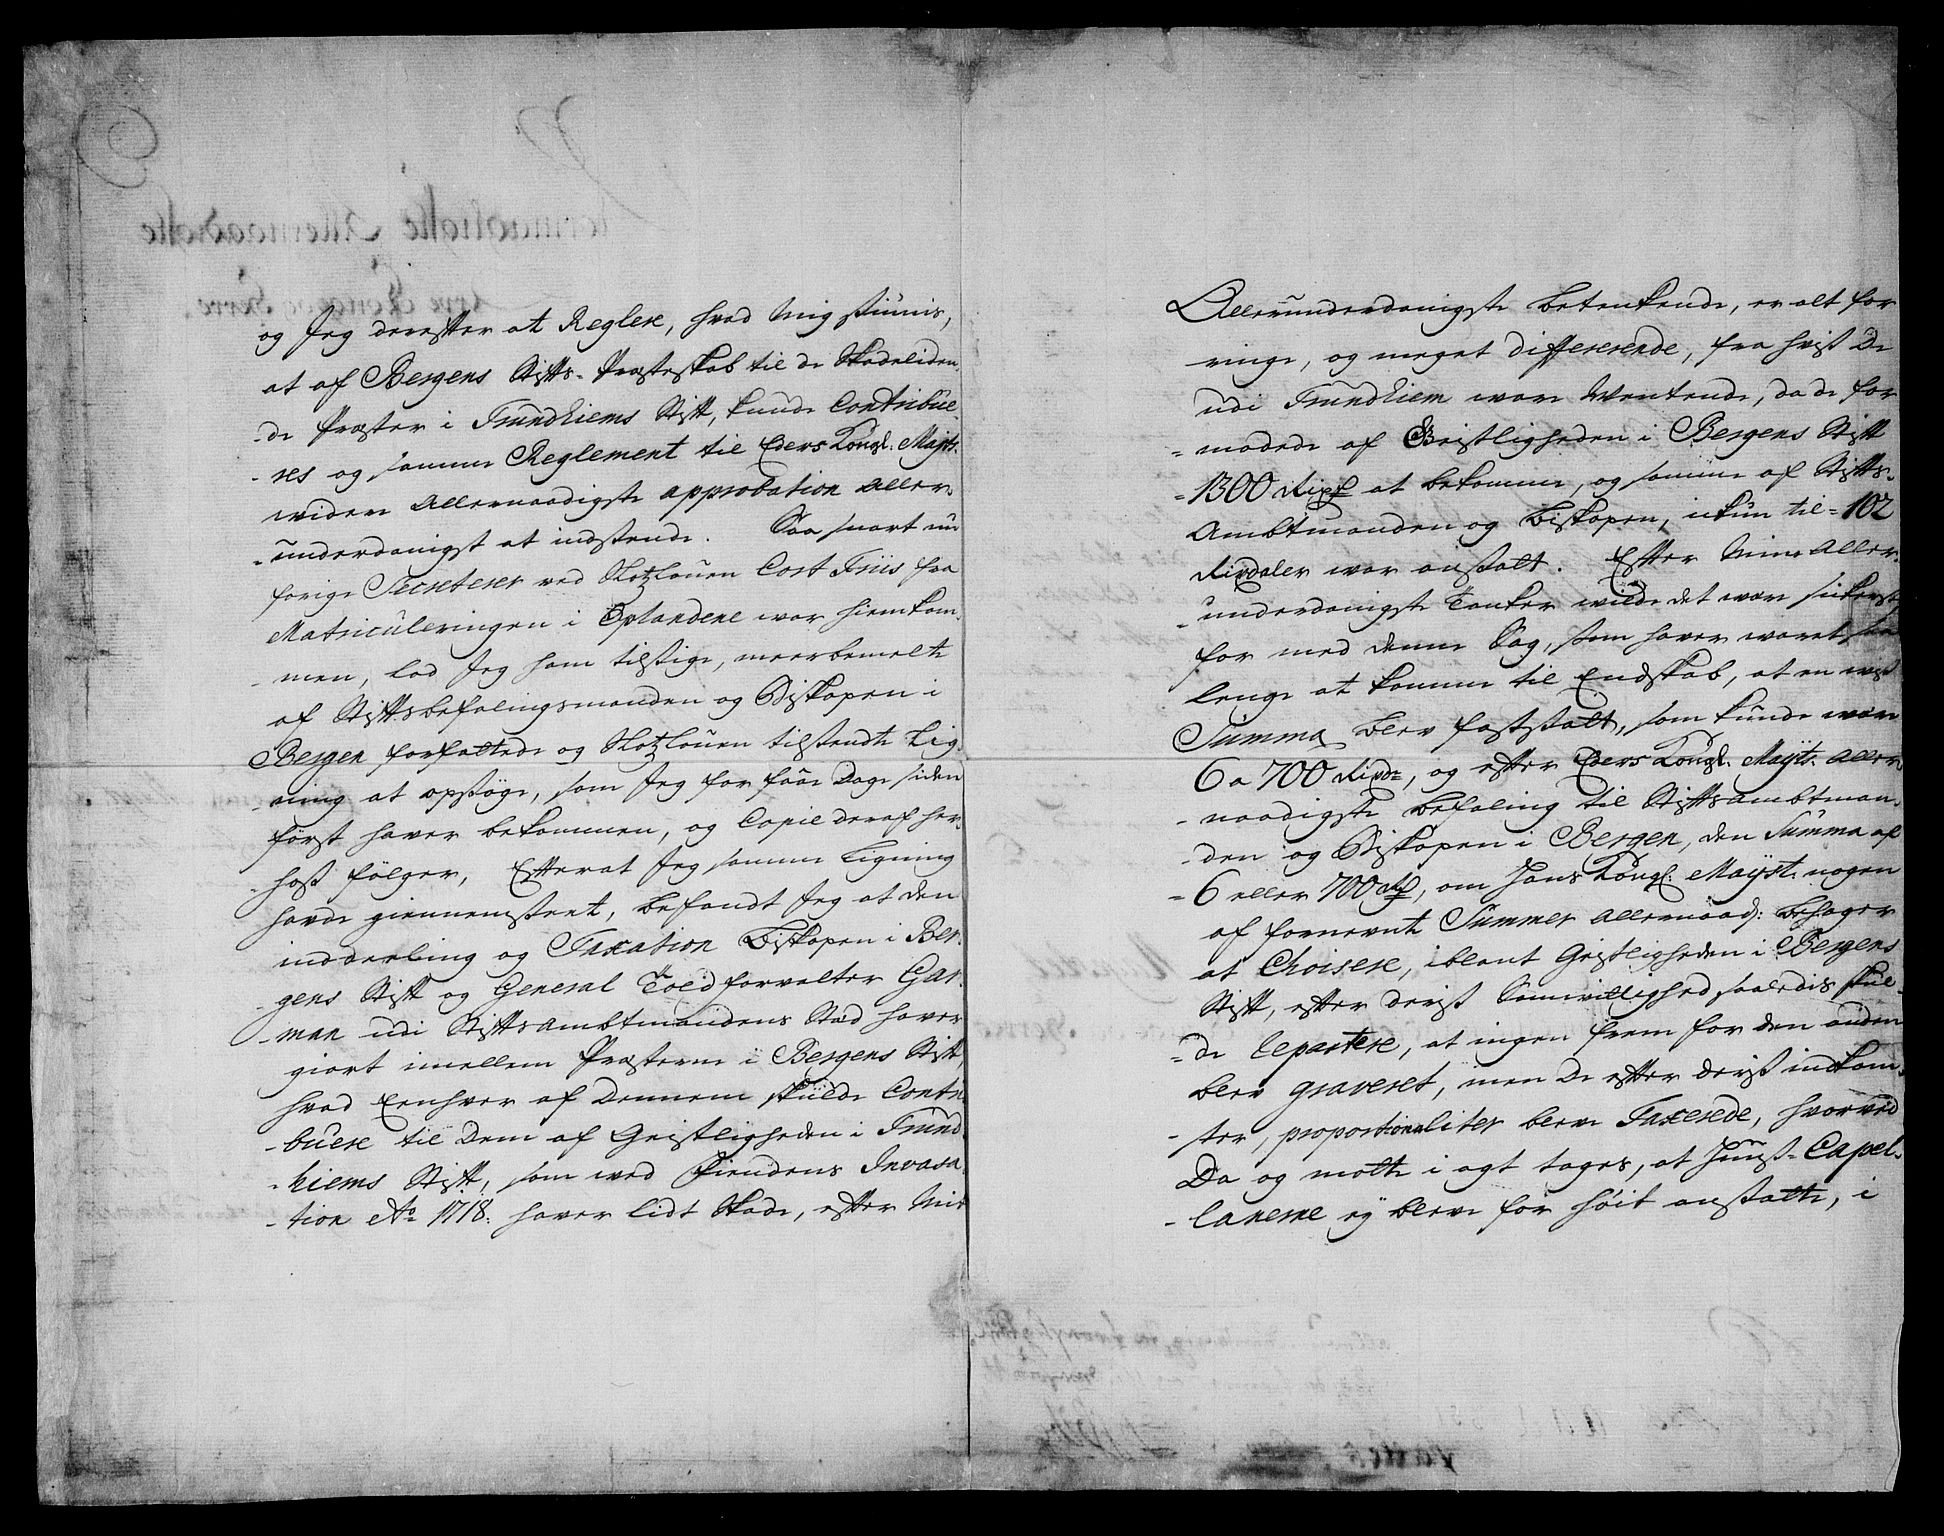 og Jeg derefter at Reglere, hvad Mig siunis,
at af Bergens Stifts-Præsteskab til de Skadeliden-
-de Præster i Trundhiems Stift, kunde Contribue-
-res og samme Reglement til Eders Kongl: Mayts.
viden Allernaadigste approbation aller-
-underdanigst at indsende. Saa snart nu
forige Secreterer ved Slotzlouen Cort Friis fra
Matriculeringen i Oplandene war hiemkom-
-men, lod Jeg ham tilsige, meerbemelte
af Stiftsbefalingsmanden og Biskopen i
Bergen forfattede og Slotzlouen tilsendte Lig-
-ning at opsøge, som Jeg for faae Dage siden
først haver bekommen, og Copie deraf her-
-hoss følger, Efterat Jeg samme Ligning
hafde giennemseet, befandt Jeg at den
inddeeling og Taxation Biskopen i Ber-
-gens Stift og General Toldforvalter Gar-
-man udi Stiftsambtmandens Stæd haver
giort imellem Præsterne i Bergens Stift,
hvad Eenhver af Dennem skulde Contri-
-buere til Dem af Geistligheden i Trund-
-hiems Stift, som ved Fiendens Invasa-
-tion Ao 1718: haver lidt Skade, efter Mit
Allerunderdanigste betenkende, er alt for
ringe, og meget differerende, fra hvist De
udi Trundhiem ware Wentende, da de for
-modede af Geistligheden i Bergens Stift
-1300 Rixd at bekomme, og samme af Stifts-
Ambtmanden og Biskopen, ikun til 102
Rixdaler war anstalt. Efter Mine Aller-
-underdanigste Tanker wilde det være sikerst,
for med denne Sag, som haver waret saa
lenge at komme til Endskab, at en wiss
Summa blev fastsatt, som kunde være
6 a 700 Rixdr, og efter Eders Kongl. Mayts. Aller-
-naadigste befaling til Stiftsambtman-
-den og Biskopen i Bergen, den Summa af
-6 eller 700 Rd, om Hans Kongl: Mayst: nogen
af fornevnte Summer Allernaad: behager
at Choisere, iblant Geistligheden i Bergens
Stift, efter deriss Samvittighed saaledis skul-
-de repartere, at ingen frem for den anden
blev graveret, men De efter deriss indkom-
-ster, proportionaliter bleve Taxerede, hvorved
Da og motte i agt tages, at Huus-Capel-
-lanerne ej bleve for høit anstalte, i